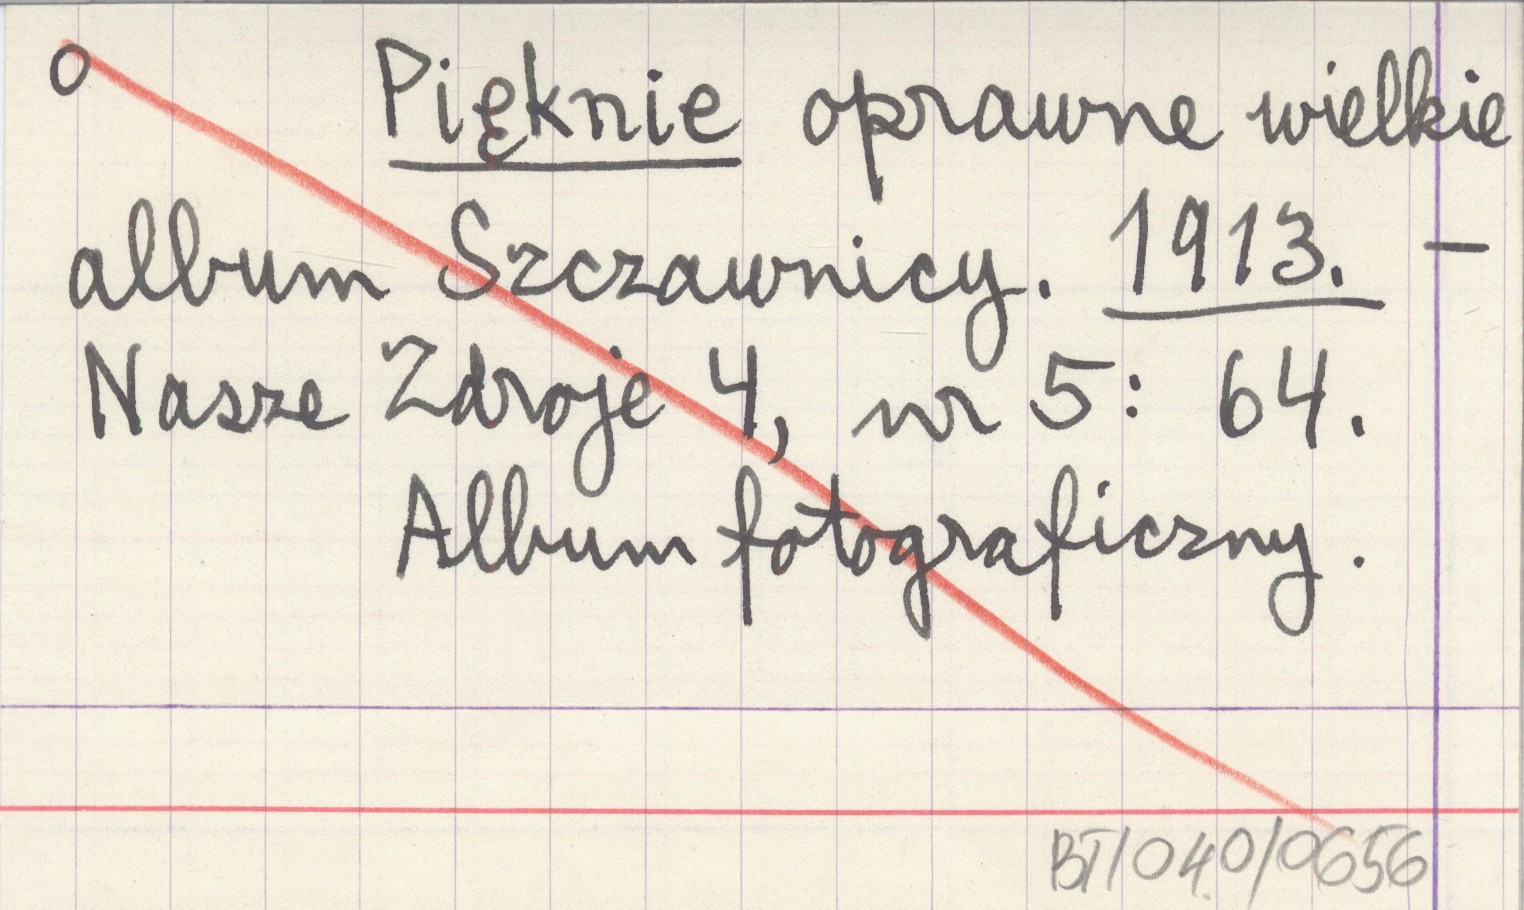 o Pięknie oprawne wielkie
album Szczawnicy. 1913. –
Nasze Zdroje 4, nr 5: 64.
Album fotograficzny.
BT/040/0656